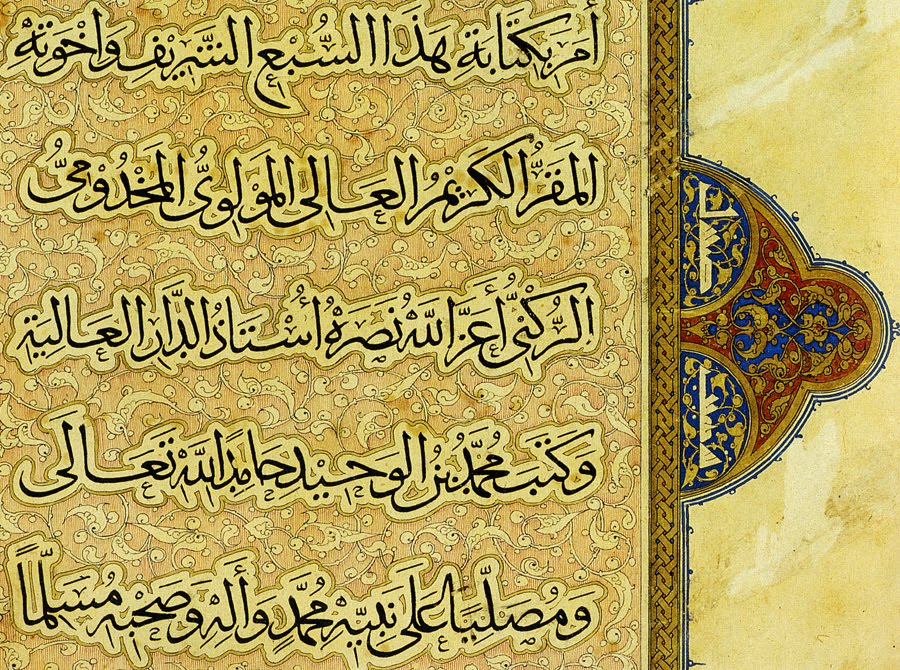 أمر بكتابة هذا السُّبع الشريف واخوته
المقرُّ الكريمُ العالى المولوىُّ المخدومىُّ
الركنىُّ أعزَّ اللَّه نصرهُ أستاذُ الدَّار العالية
وكتبَ محمَّد بنُ الوحيد حامدًا للَّه تعَالَى
ومُصلّيًا عَلَى نبيّه محمَّدٍ وأله وصحبه مُسلّمًا